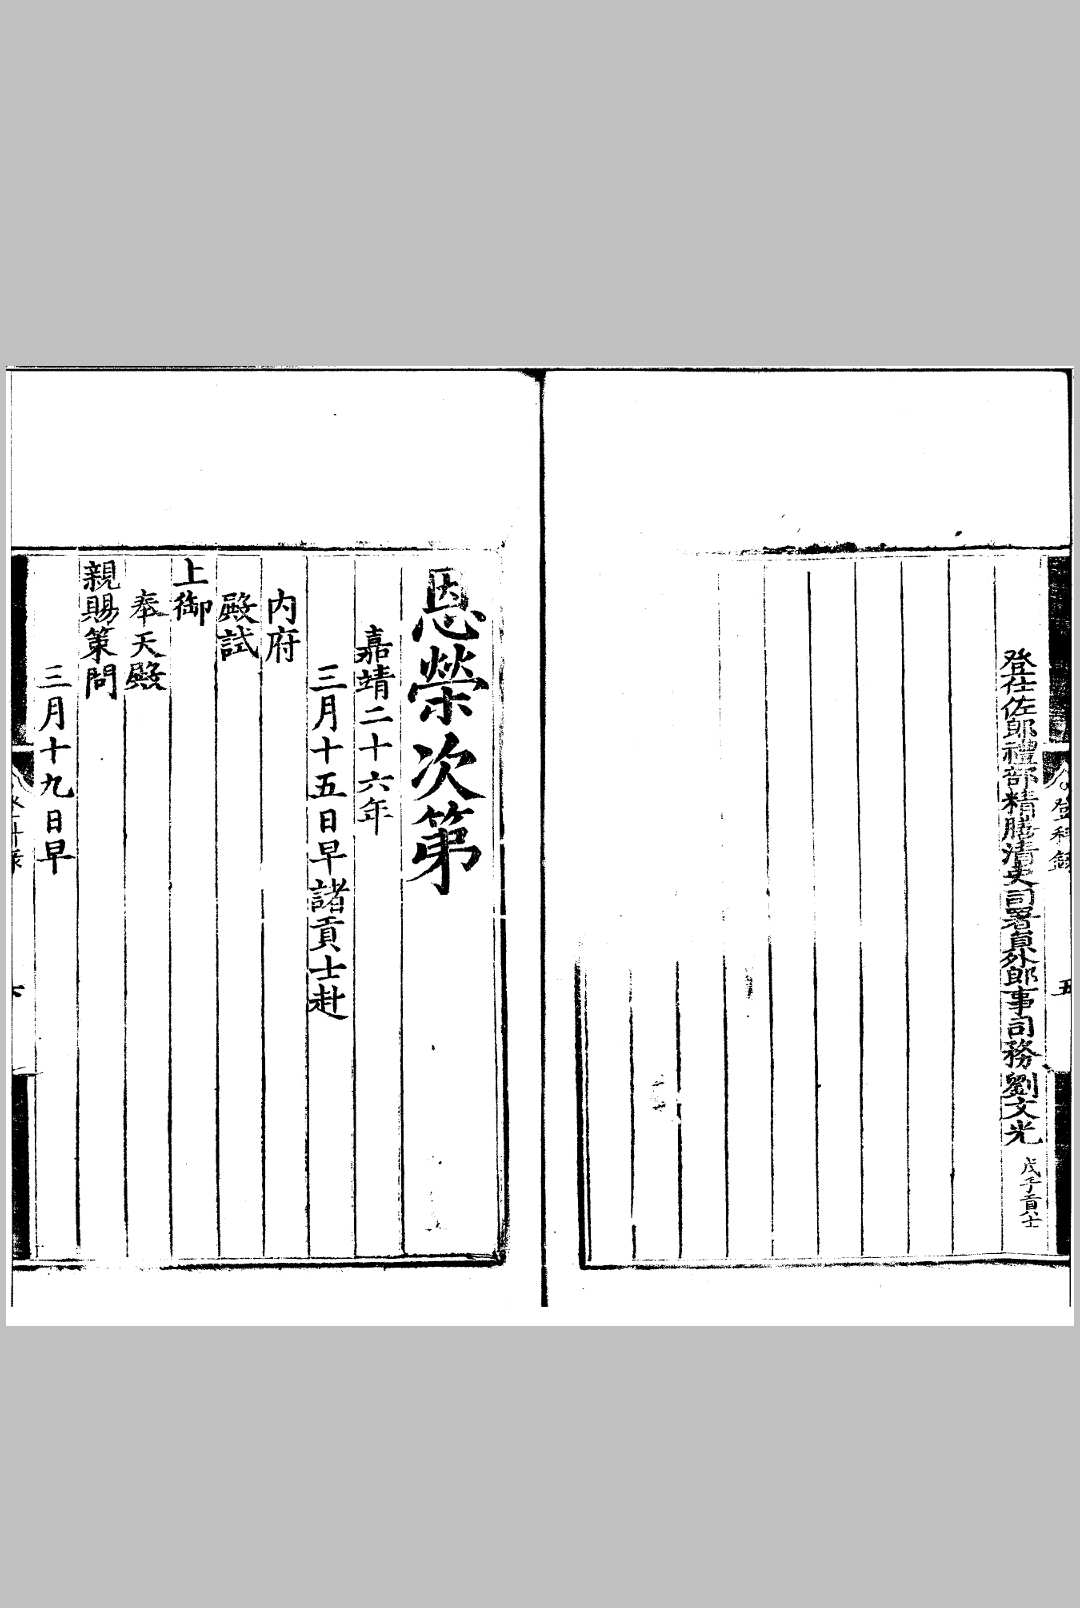 登科錄
五
登仕佐郎禮部精膳清吏司署員外郎事司務劉文光戊子貢士
恩榮次第
嘉靖二十六年
三月十五日早諸貢士赴
內府
殿試
上御
奉天殿
親賜策問
三月十九日早